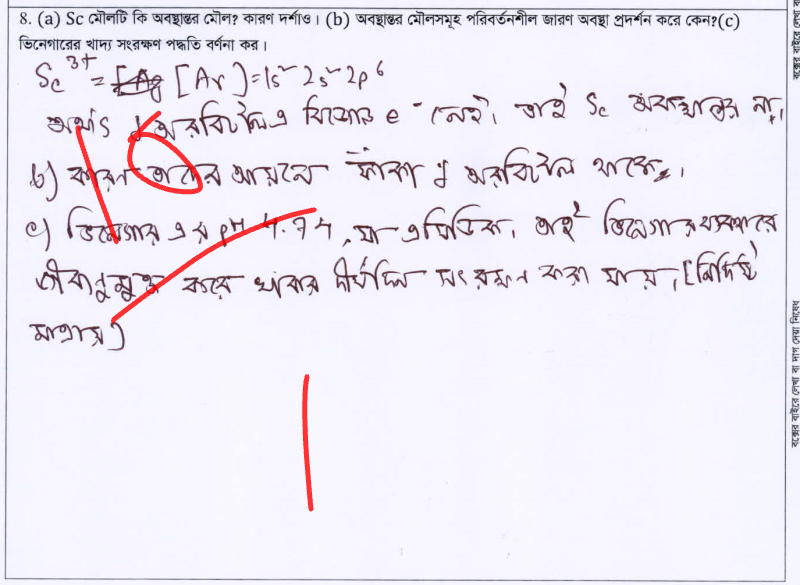 8. (a) Sc মৌলটি কি অবস্থান্তর মৌল? কারণ দর্শাও। (b) অবস্থান্তর মৌলসমূহ পরিবর্তনশীল জারণ অবস্থা প্রদর্শন করে কেন?(c)
ভিনেগারের খাদ্য সংরক্ষণ পদ্ধতি বর্ণনা কর।
Sc³⁺ = [Ar] = 1s² 2s² 2p⁶
অর্থাৎ d অরবিটাল এ বিজোড় e⁻ নেই, তাই Sc অবস্থান্তর না।
b) কারণ তাদের আয়নে ফাঁকা d অরবিটাল থাকে।
c) ভিনেগার এর pH 4.74, যা এসিডিক, তাই ভিনেগার ব্যবহারে
জীবাণুমুক্ত করে খাবার দীর্ঘদিন সংরক্ষণ করা যায়, [নির্দিষ্ট
মাত্রায়]
বক্সের বাইরে লেখা বা দাগ দেয়া নিষেধ
বক্সের বাইরে লেখা বা